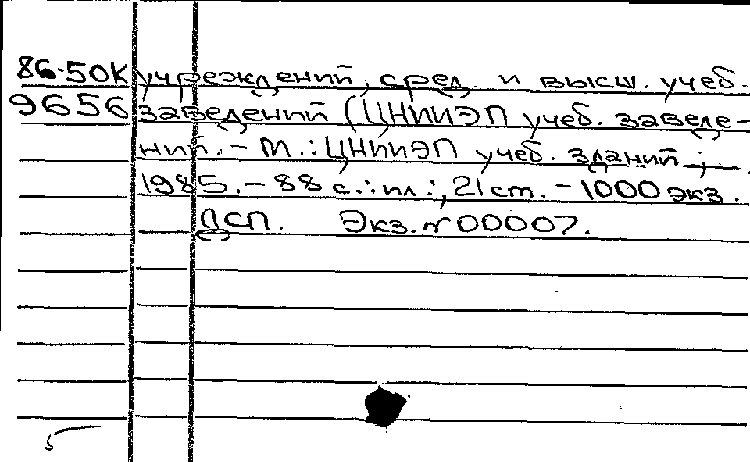 86-50К учреждений, сред. и высш. учеб.
9656 заведений (ЦНИИЭП учеб. заведе-
ний. - М.: ЦНИИЭП учеб. зданий ; -
1985. - 88 с.: ил.; 21 см. - 1000 экз.
ДСП. Экз. № 00007.